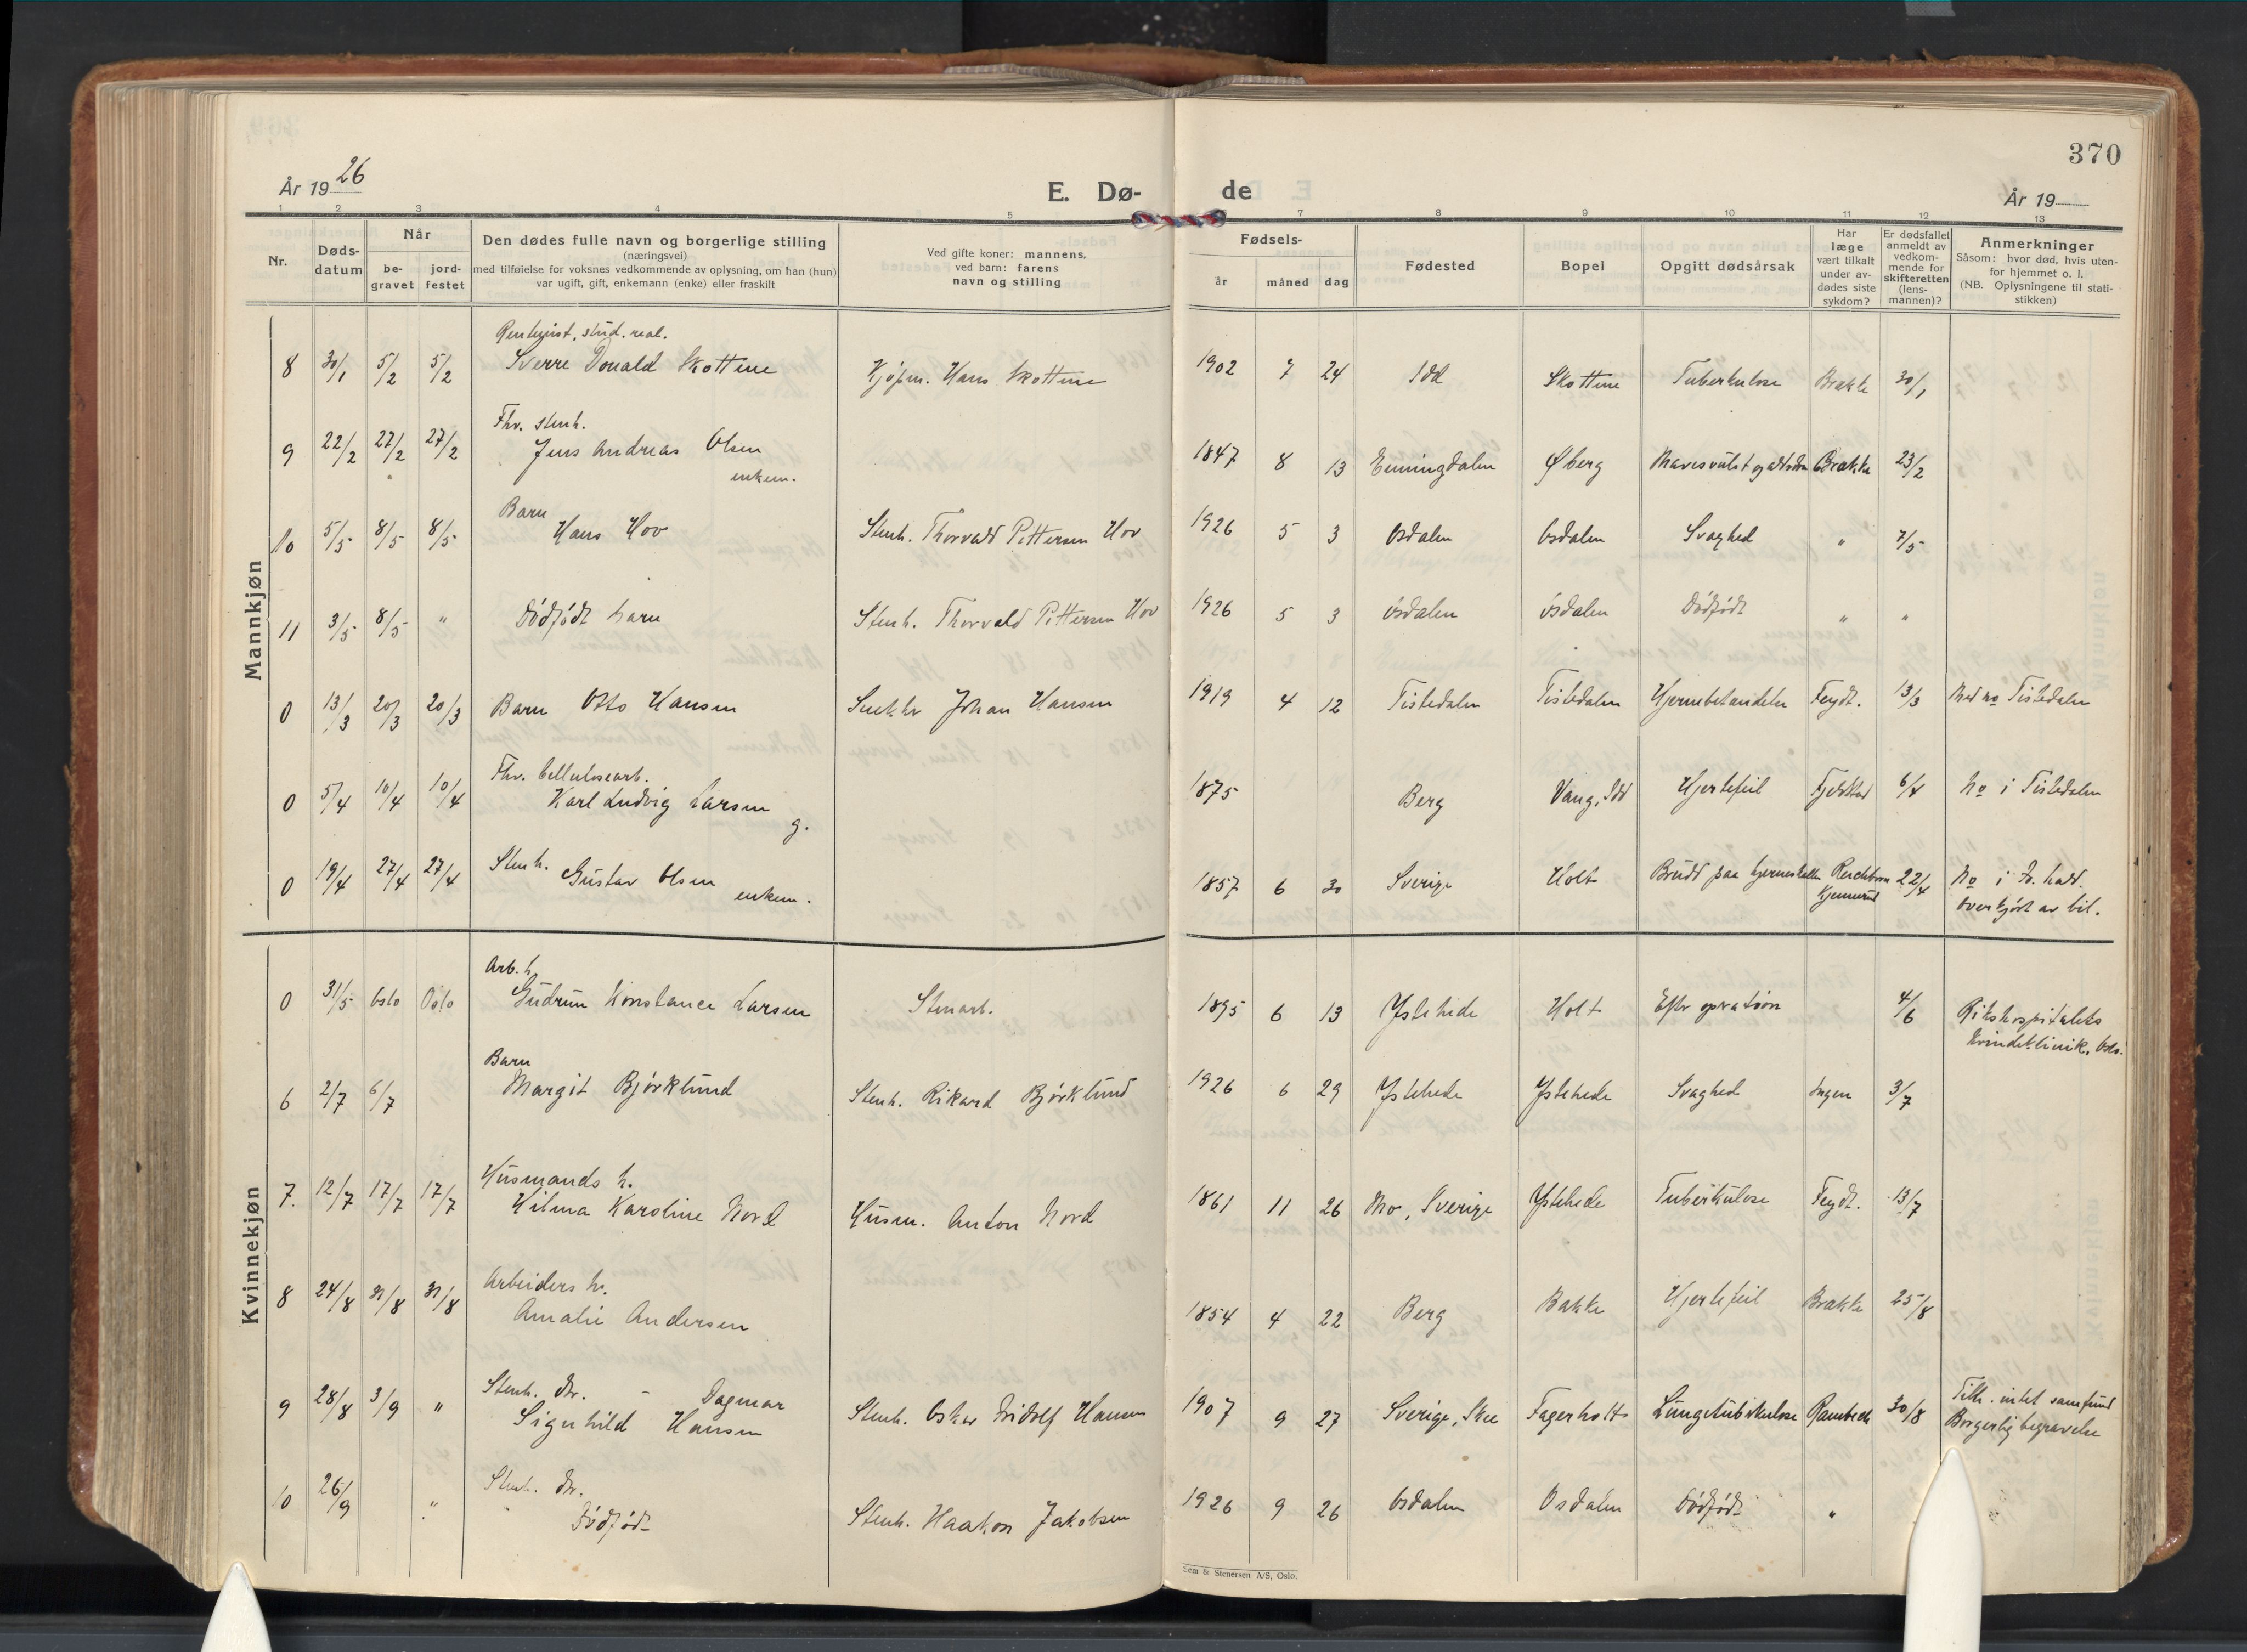 370
År 1926
E. Dø-
de
År 19
1 2 3 4 5 7 8 9 10 11 12 13
Nr.
Døds-
datum
Når
be-
gravet
jord-
festet
Den dødes fulle navn og borgerlige stilling
(næringsvei)
med tilføielse for voksnes vedkommende av oplysning, om han (hun)
var ugift, gift, enkemann (enke) eller fraskilt
Ved gifte koner: mannens,
ved barn: farens
navn og stilling
Fødsels-
år måned dag
Fødested
Bopel
Opgitt dødsårsak
Har
læge
vært tilkalt
under av-
dødes siste
sykdom?
Er dødsfallet
anmeldt av
vedkom-
mende for
skifteretten
(lens-
mannen)?
Anmerkninger
Såsom: hvor død, hvis uten-
for hjemmet o. l.
(NB. Oplysningene til stati-
stikken)
Mannkjøn
stud. real.
8 30/1 5/2 5/2 Sverre Donald Skottene Kjøpm. Hans Skottene 1902 7 24 Idd Skottene Tuberkulose Brakke 30/1
Fhv. stenh.
9 22/2 27/2 27/2 Jens Andreas Olsen 1847 8 13 Enningdalen Øberg Brakke 23/2
enkem.
Barn
10 5/5 8/5 8/5 Hans Hov Stenh. Thorvald Pettersen Hov 1926 5 3 Osdalen Osdalen Svaghed " 7/5
11 3/5 8/5 " Dödfödt barn Stenh. Thorvald Pettersen Hov 1926 5 3 Ósdalen Ósdalen Dödfödt " "
0 13/3 20/3 20/3 Barn Otto Hansen Johan Hansen 1919 4 12 Tistedalen Tistedalen Hjernebetændelse Feydt. 13/3 Tistedalen
Fhv. Cellulosearb.
0 5/4 10/4 10/4 Karl Ludvig Larsen 1875 Berg Vang, Idd Hjertefeil Fjeldstad 6/4 No i Tistedalen
g.
0 19/4 27/4 27/4 Stenh. Gustav Olsen 1857 6 30 Sverige Holt Brudd paa hjerneskallen 22/4 No i Fr. hald.
enkem. Overkjört av bil.
Kvinnekjøn
Arb. h.
0 31/5 Oslo Oslo Gudrun Konstance Larsen Stenarb. 1895 6 13 Ystehede Holt Efter operation 4/6 Rikshospitalets
Kvindeklinik, Oslo.
Barn
6 2/7 6/7 Margit Björklund Stenh. Rikard Björklund 1926 6 29 Ystehede Ystehede Svaghed Ingen 3/7
Husmands h.
7. 12/7 17/7 17/7 Hilma Karoline Nord Husm. Anton Nord 1861 11 26 Mo, Sverige Ystehede Tuberkulose Feydt. 13/7
Arbeiders h.
8 24/8 31/8 31/8 Amalie Andersen 1854 4 22 Berg Bakke Hjertefeil Brakke 25/8
Stenh. dtr. - Dagmar
9 28/8 3/9 " Signhild Hansen Stenh. Oskar Fridolf Hansen 1907 9 27 Sverige, Skee Fagerholt Lungetuberkulose Rambech 30/8 Tilh. intet samfund
Borgerlig begravelse
Stenh. dtr.
10 26/9 " Dödfödt Stenh. Haakon Jakobsen 1926 9 26 Osdalen Osdalen Dödfödt "
Sem & Stenersen A/S, Oslo.